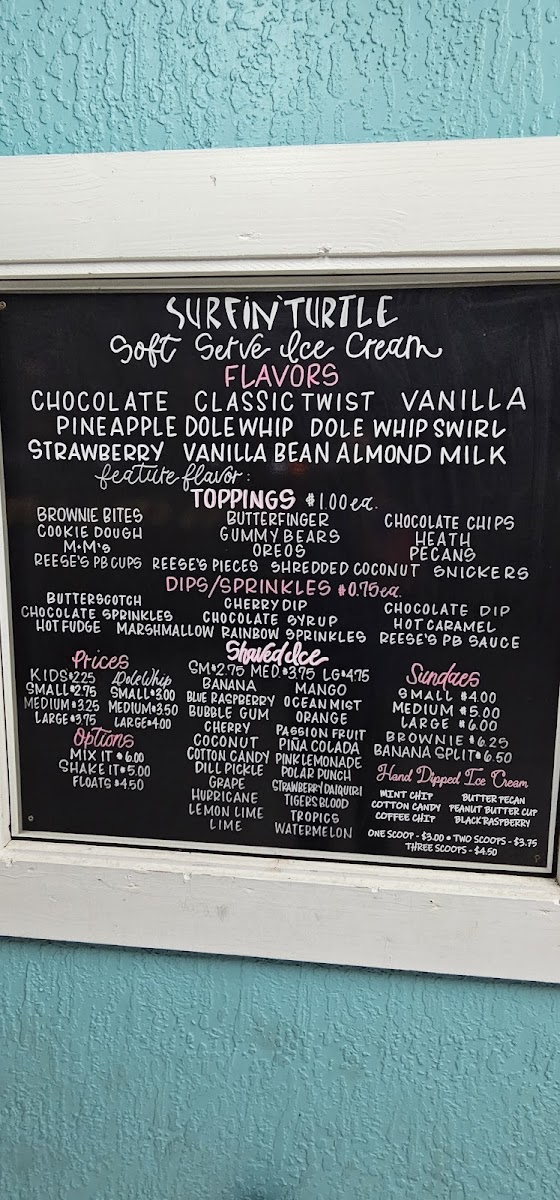 SURFIN' TURTLE
Soft Serve Ice Cream
FLAVORS
CHOCOLATE CLASSIC TWIST VANILLA
PINEAPPLE DOLE WHIP DOLE WHIP SWIRL
STRAWBERRY VANILLA BEAN ALMOND MILK
feature flavor:
TOPPINGS $1.00 ea.
BROWNIE BITES BUTTERFINGER CHOCOLATE CHIPS
COOKIE DOUGH GUMMY BEARS HEATH
M•M's OREOS PECANS
REESE'S PB CUPS REESE'S PIECES SHREDDED COCONUT SNICKERS
DIPS/SPRINKLES $0.75 ea.
BUTTERSCOTCH CHERRY DIP CHOCOLATE DIP
CHOCOLATE SPRINKLES CHOCOLATE SYRUP HOT CARAMEL
HOT FUDGE MARSHMALLOW RAINBOW SPRINKLES REESE'S PB SAUCE
Prices
KIDS $2.25
SMALL $2.75
MEDIUM $3.25
LARGE $3.75
Dole Whip
SMALL $3.00
MEDIUM $3.50
LARGE $4.00
Options
MIX IT $6.00
SHAKE IT $5.00
FLOATS $4.50
Shaved Ice
SM $2.75 MED $3.75 LG $4.75
BANANA
BLUE RASPBERRY
BUBBLE GUM
CHERRY
COCONUT
COTTON CANDY
DILL PICKLE
GRAPE
HURRICANE
LEMON LIME
LIME
MANGO
OCEAN MIST
ORANGE
PASSION FRUIT
PIÑA COLADA
PINK LEMONADE
POLAR PUNCH
STRAWBERRY DAIQUIRI
TIGERS BLOOD
TROPICS
WATERMELON
Sundaes
SMALL $4.00
MEDIUM $5.00
LARGE $6.00
BROWNIE $6.25
BANANA SPLIT $6.50
Hand Dipped Ice Cream
MINT CHIP BUTTER PECAN
COTTON CANDY PEANUT BUTTER CUP
COFFEE CHIP BLACK RASPBERRY
ONE SCOOP - $3.00 • TWO SCOOPS - $3.75
THREE SCOOPS - $4.50